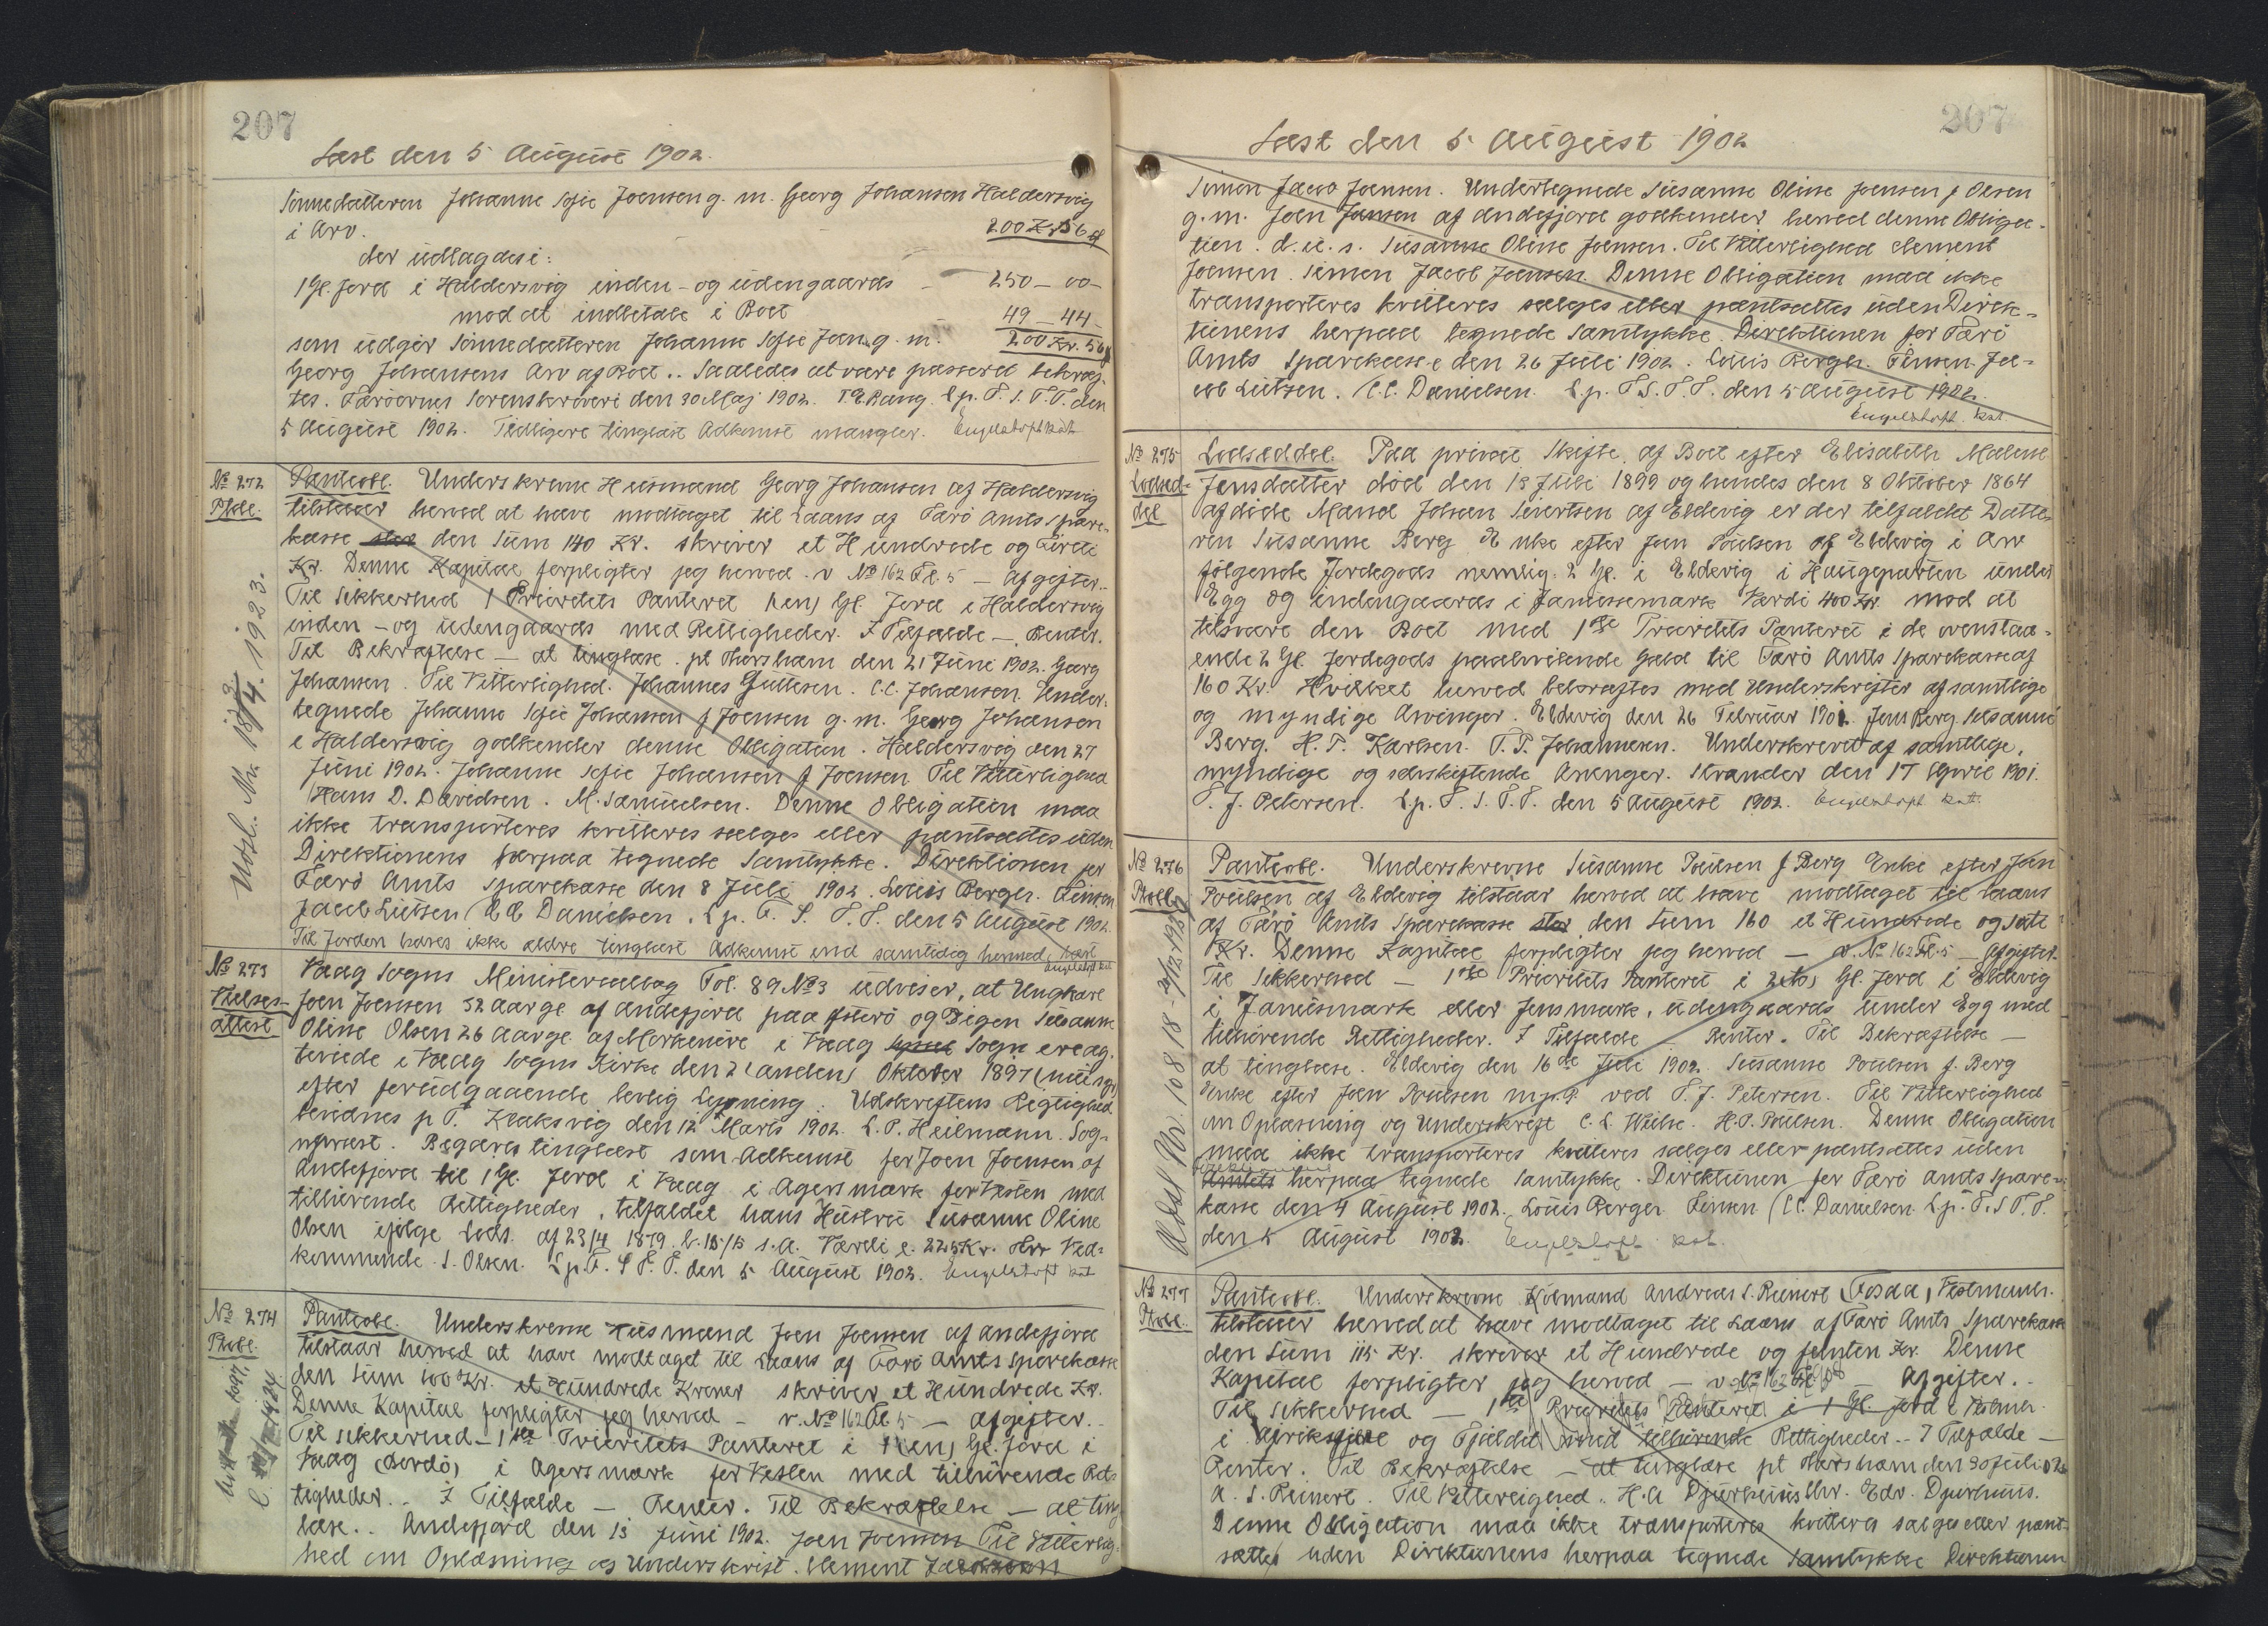 207
Læst den 5 August 1902.
Sønnedatteren Johanne Sofie Joensen g. m. Georg Johansen Haldersvig
i Arv.
200 Kr 56
der udlagdes i:
1 Gl. Jord i Haldersvig inden- og udengaards - 250 - 00 -
mod at indbetale i Boet 49 - 44 -
som udgør Sønnedatteren Johanne Sofie Joens. g. m. 200 Kr. 56
Georg Johansens Arv af Boet.. Saaledes at være passeret bekræf-
tes. Færøernes Sorenskriveri den 30 Maj 1902. T. E. Bang. Lp. F. S. T. T. den
5 August 1902. Tidligere tinglæst Adkomst mangler. Engelstoft kst.
No 272
Ptobl.
Udsl. Nr. 1923.
Panteobl. Underskrevne Husmand Georg Johansen af Haldersvig
tilstaaer herved at have modtaget til Laans af Færø Amts Spare-
kasse stor den Sum 140 Kr. skriver et Hundrede og Firti
Kr. Denne Kapital forpligter jeg herved - v No 162 Fl. 5 - Afgifter..
Til Sikkerhed 1 Prioritets Panteret i (en) Gl. Jord i Haldersvig
inden- og udengaards med Rettigheder. I Tilfælde - Renter.
Til Bekræftelse - at tinglæse. pt Thorshavn den 21 Juni 1902. Georg
Johansen. Til Vitterlighed. Johannes Guttesen. C. C. Johansen. Under-
tegnede Johanne Sofie Johansen f Joensen g. m. Georg Johansen
i Haldersvig godkender denne Obligation. Haldersvig den 27
Juni 1902. Johanne Sofie Johansen f Joensen Til Vitterlighed
Hans D. Davidsen. M. Samuelsen. Denne Obligation maa
ikke transporteres kvitteres sælges eller pantsættes uden
Direktionens herpaa tegnede Samtykke. Direktionen for
Færø Amts Sparekasse den 8 Juli 1902. Louis Bergh. Finsen
Jacob Lützen / C C Danielsen. Lp. F. S. T. T. den 5 August 1902.
Til Jorden haves ikke ældre tinglæst Adkomst end samtidig hermed læst
Engelstoft kst
No 273
Vielses-
attest
Vaag Sogns Ministerialbog Fol. 89 No 3 udviser, at Ungkarl
Joen Joensen 32 Aarge af Andefjord paa Østerø og Pigen Susanne
Oline Olsen 26 Aarge af Morkenøre i Vaag Sogn ere æg-
teviede i Vaag Sogns Kirke den 2 (anden) Oktober 1897
efter forudgaaende lovlig Lysning. Udskriftens Rigtighed
bevidnes p T. Klaksvig den 12 Marts 1902. L. P. Heilmann. Sog-
nepræst. Begæres tinglæst som Adkomst for Joen Joensen af
Andefjord til 1 Gl. Jord i Vaag i Agersmark for Vesten med
tilhørende Rettigheder, tilfaldet hans Hustru Susanne Oline
Olsen ifølge Lods. af 23/4 1879 l. 15/5 s. A. Værdi c. 225 Kr. Ved-
kommende. S. Olsen. Lp. F. S T. T. den 5 August 1902. Engelstoft kst
No 274
Ptobl.
Panteobl. Underskrevne Husmand Joen Joensen af Andefjord
tilstaar herved at have modtaget til Laans af Færø Amts Sparekasse
den Sum 100 Kr. et Hundrede Kroner skriver et Hundrede Kr.
Denne Kapital forpligter jeg herved - v. No 162 Fl 5 - Afgifter..
Til Sikkerhed - 1ste Prioritets Panteret i 1 (en) Gl. Jord i
Vaag (Bordø) i Agersmark for Vesten med tilhørende Ret-
tigheder.. I Tilfælde - Renter. Til Bekræftelse - at ting-
læse.. Andefjord den 13 Juni 1902. Joen Joensen Til Vitterlig-
hed om Oplæsning og Underskrift. Clement Jacobsen
207
Læst den 5 August 1902
Simon Jacob Joensen. Undertegnede Susanne Oline Joensen f Olsen
g. m. Joen Jensen af Andefjord godkender herved denne Obliga-
tion. d. u. s. Susanne Oline Joensen. Til Vitterlighed Clement
Joensen. Simon Jacob Joensen. Denne Obligation maa ikke
transporteres kvitteres sælges eller pantsættes uden Direk-
tionens herpaa tegnede Samtykke. Direktionen for Færø
Amts Sparekasse den 26 Juli 1902. Louis Bergh. Finsen. Ja-
cob Lützen. / C. C. Danielsen. Lp. F S. T. T. den 5 August 1902.
Engelstoft. kst.
No 275
Lodsed-
del
Lodseddel. Paa privat Skifte af Boet efter Elisabeth Malene
Jensdatter død den 18 Juli 1899 og hendes den 8 Oktober 1864
afdøde Mand Johan Sivertsen af Eldevig er der tilfaldet Datte-
ren Susanne Berg Enke efter Joen Poulsen af Eldevig i Arv
følgende Jordegods nemlig: 2 Gl. i Eldevig i Haugeparten under
Egg og indengaards i Janussemark Værdi 400 Kr. mod at
tilsvare den Boet med 1ste Prioritets Panteret i de ovenstaa-
ende 2 Gl. Jordegods paahvilende Gæld til Færø Amts Sparekasse af
160 Kr. Hvilket herved bekræftes med Underskrifter af samtlige
og myndige Arvinger. Eldevig den 26 Februar 1901. Jens Berg. Susanne
Berg. H. P. Karlsen. P. P. Johannesen. Underskrevet af samtlige,
myndige og selvskiftende Arvinger. Strænder den 17 April 1901.
P. J. Petersen. Lp. F. S. T. T. den 5 August 1902. Engelstoft kst.
No 276
Ptobl
Panteobl. Underskrevne Susanne Poulsen f Berg Enke efter Joen
Poulsen af Eldevig tilstaar herved at have modtaget til Laans
af Færø Amts Sparekasse stor den Sum 160 et Hundrede og seksti
Kr. Denne Kapital forpligter jeg herved - v. No 162 Fl. 5 - Afgifter.
Til Sikkerhed - 1ste Prioritets Panteret i 2 (to) Gl. Jord i Eldevig
i Janusmark eller Jensmark, udengaards under Egg med
tilhørende Rettigheder. I Tilfælde - Renter. Til Bekræftelse -
at tinglæse. Eldevig den 16de Juli 1902. Susanne Poulsen f. Berg
Enke efter Joen Poulsen m. p. P. ved P. J. Petersen. Til Vitterlighed
om Oplæsning og Underskrift C. L. Weihe. H. P. Poulsen. Denne Obligation
maa ikke transporteres kvitteres sælges eller pantsættes uden
herpaa tegnede Samtykke. Direktionen for Færø Amts Spare-
kasse den 4 August 1902. Louis Bergh. Finsen / C C. Danielsen. Lp. F. S T. T.
den 5 August 1902. Engelstoft kst.
No 277
Ptobl.
Panteobl. Underskrevne Købmand Andreas S. Reinert (Fosaa) Vestmanh.
tilstaaer herved at have modtaget til Laans af Færø Amts Sparekasse
den Sum 115 Kr. skriver et Hundrede og femten Kr. Denne
Kapital forpligter jeg herved - v. No 162 - Afgifter..
Til Sikkerhed - 1ste Prioritets Panteret i 1 Gl. Jord i Vestmh.
i og Fjeldet med tilhørende Rettigheder.. I Tilfælde -
Renter. Til Bekræftelse - at tinglæse pt Thorshavn den 30 Juli 02
A. S. Reinert. Til Vitterlighed.. H. A Djurhuus Chr. Edv. Djurhuus.
Denne Obligation maa ikke transporteres kvitteres sælges eller pant-
sættes uden Direktionens herpaa tegnede Samtykke Direktionen